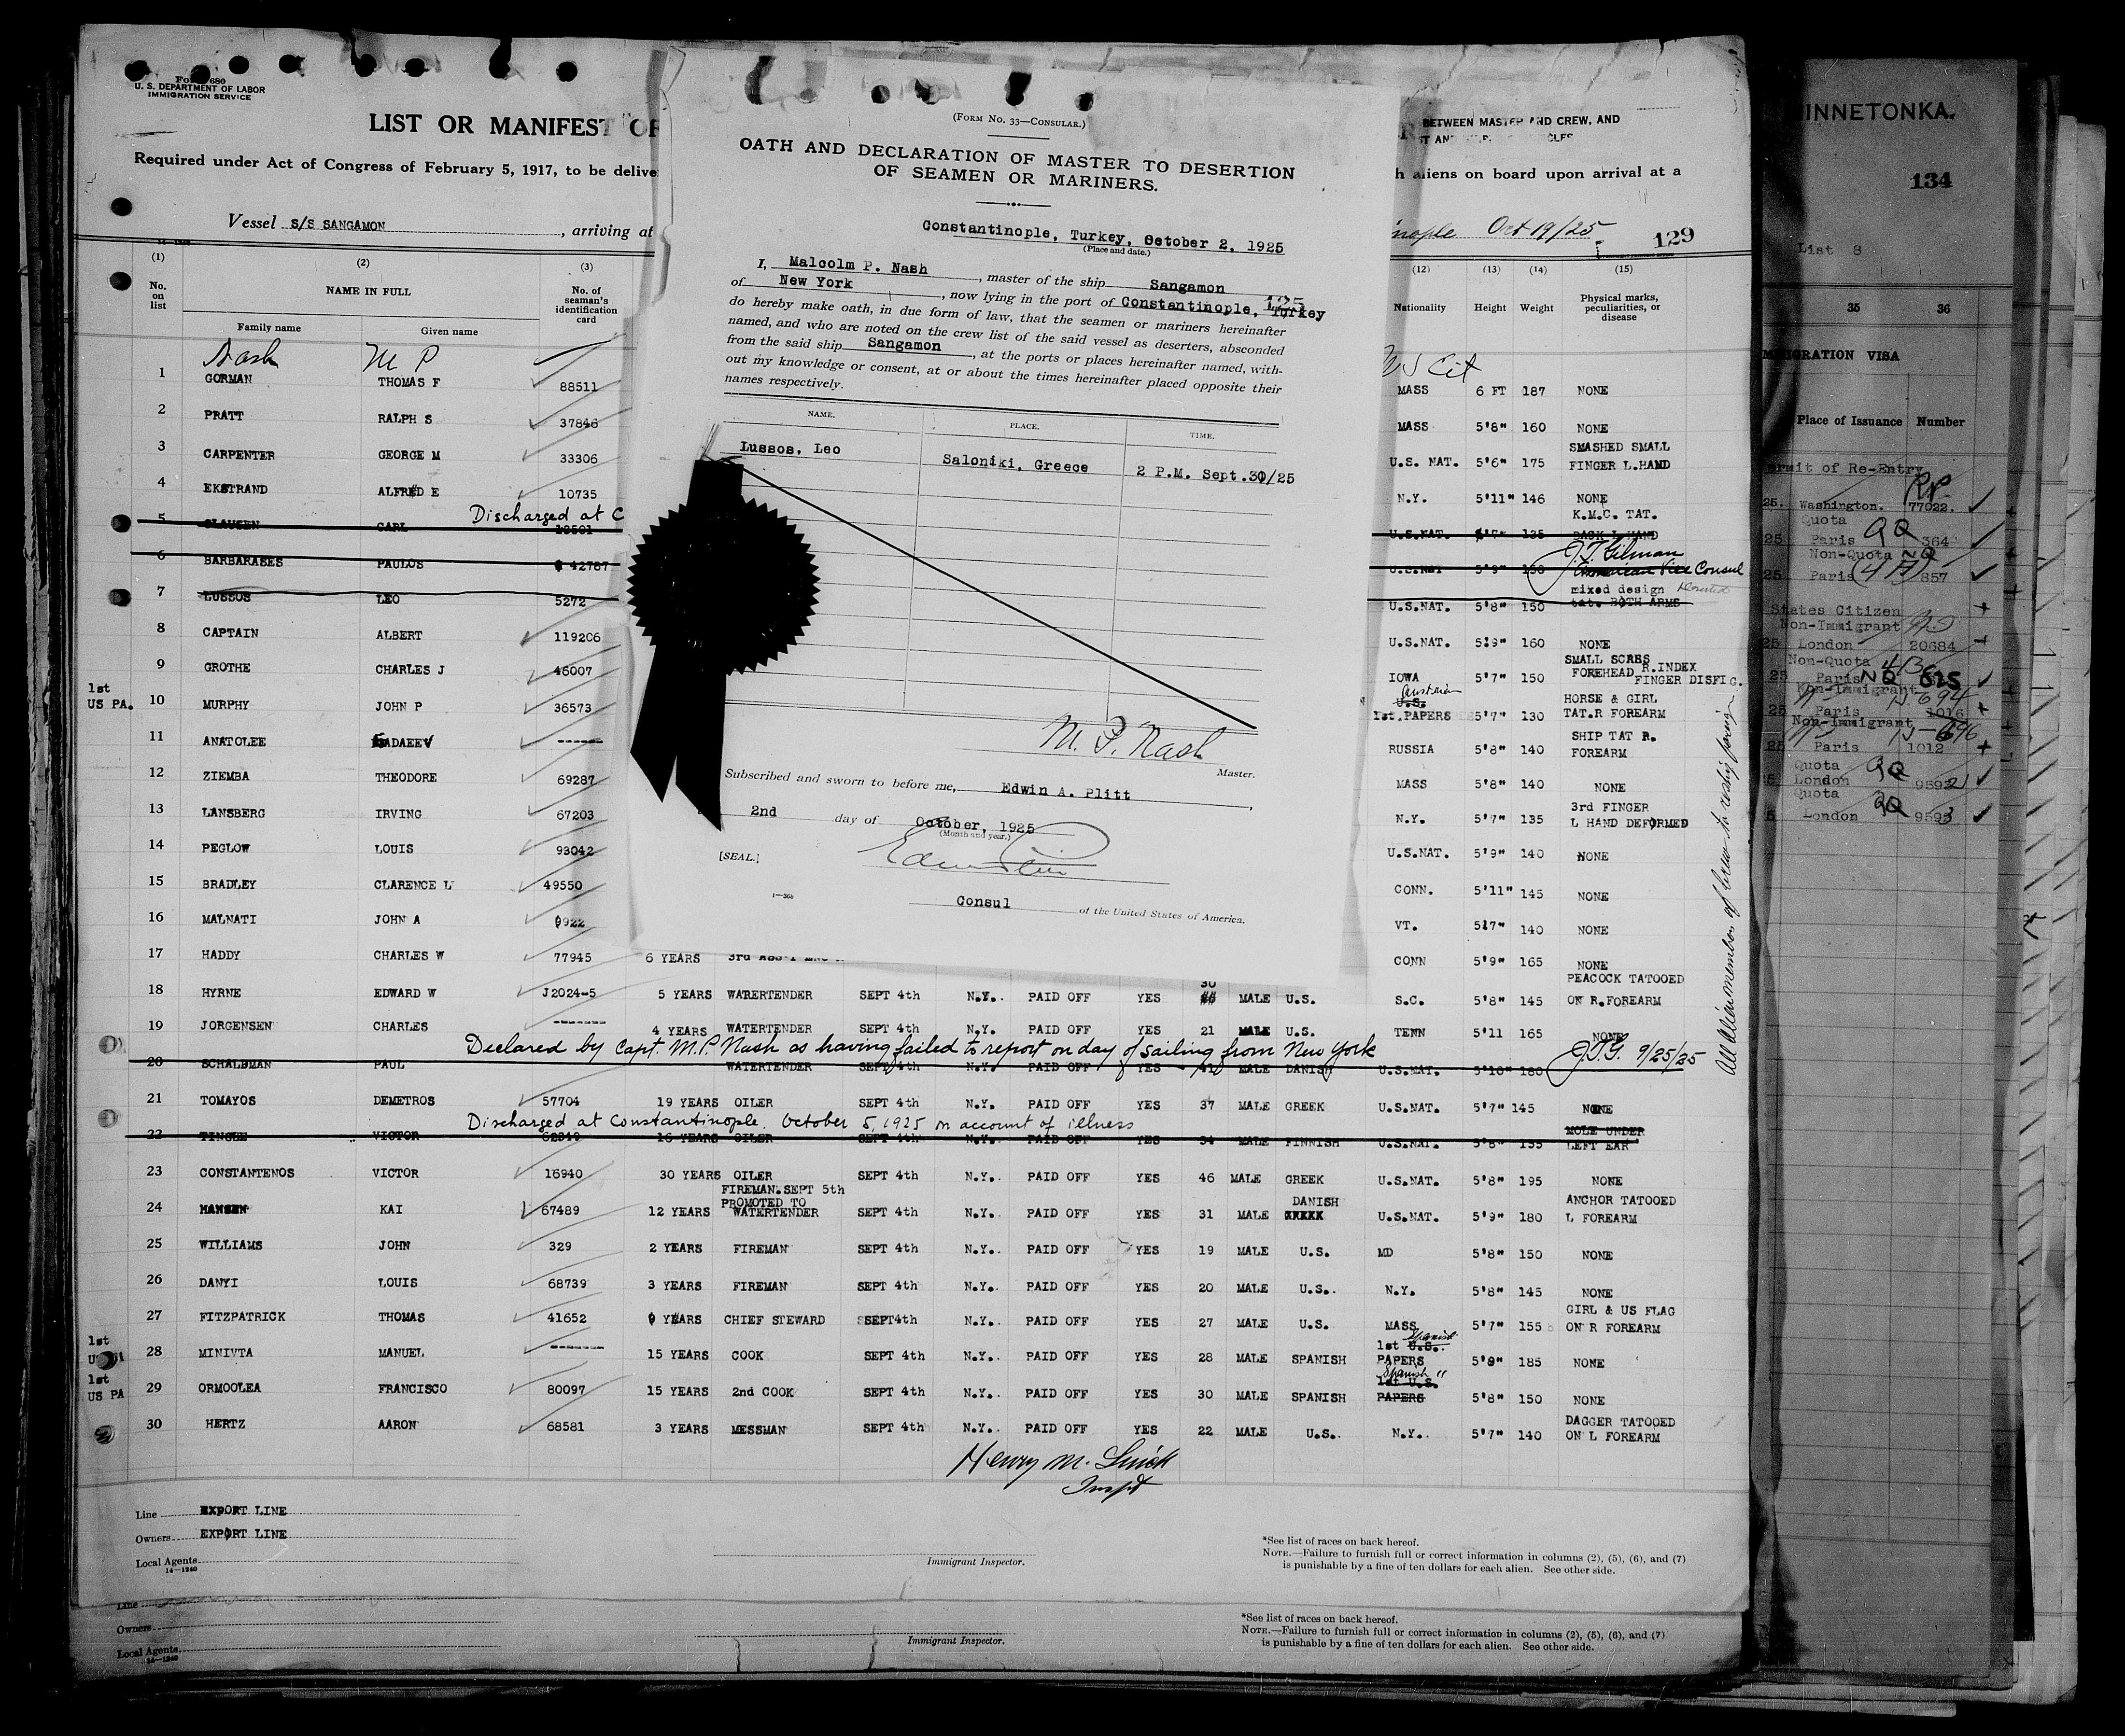 Form 680
U. S. DEPARTMENT OF LABOR
IMMIGRATION SERVICE
LIST OR MANIFEST OF
Required under Act of Congress of February 5, 1917, to be delive
Vessel S/S SANGAMON, arriving at
14—1240
(1) (2) (3)
No. on list NAME IN FULL No. of seaman's identification card
Family name Given name
Nash M P
1 GORMAN THOMAS F 88511
2 PRATT RALPH S 37846
3 CARPENTER GEORGE M 33306
4 EKSTRAND ALFRED E 10735
Discharged at C
5 CLAUSEN CARL
6 BARBARASES PAULOS 42787
7 LUSSOS LEO 5272
8 CAPTAIN ALBERT 119206
9 GROTHE CHARLES J 46007
1st US PA. 10 MURPHY JOHN P 36573
11 ANATOLEE ------
12 ZIEMBA THEODORE 69287
13 LANSBERG IRVING 67203
14 PEGLOW LOUIS 93042
15 BRADLEY CLARENCE L 49550
16 MALNATI JOHN A 9922
17 HADDY CHARLES W 77945 6 YEARS
18 HYRNE EDWARD W J2024-5 5 YEARS WATERTENDER SEPT 4th N.Y. PAID OFF YES 30 MALE U.S. S.C. 5'8" 145 PEACOCK TATOOED ON R.FOREARM
19 JORGENSEN CHARLES ------- 4 YEARS WATERTENDER SEPT 4th N.Y. PAID OFF YES 21 MALE U.S. TENN 5'11 165 NONE
Declared by Capt. M.P. Nash as having failed to report on day of sailing from New York J.T.G. 9/25/25
20 SCHALDMAN PAUL WATERTENDER SEPT 4th N.Y. PAID OFF YES 41 MALE DANISH U.S.NAT. 5'10" 180
21 TOMAYOS DEMETROS 57704 19 YEARS OILER SEPT 4th N.Y. PAID OFF YES 37 MALE GREEK U.S.NAT. 5'7" 145 NONE
Discharged at Constantinople. October 5, 1925 on account of illness
22 VICTOR 16 YEARS OILER SEPT 4th N.Y. PAID OFF YES 34 MALE FINNISH U.S.NAT. 5'8" 155 MOLE UNDER LEFT EAR
23 CONSTANTENOS VICTOR 16940 30 YEARS OILER SEPT 4th N.Y. PAID OFF YES 46 MALE GREEK U.S.NAT. 5'8" 195 NONE
FIREMAN.SEPT 5th PROMOTED TO
24 HANSEN KAI 67489 12 YEARS WATERTENDER SEPT 4th N.Y. PAID OFF YES 31 MALE DANISH U.S.NAT. 5'9" 180 ANCHOR TATOOED L FOREARM
25 WILLIAMS JOHN 329 2 YEARS FIREMAN SEPT 4th N.Y. PAID OFF YES 19 MALE U.S. MD 5'8" 150 NONE
26 DANYI LOUIS 68739 3 YEARS FIREMAN SEPT 4th N.Y. PAID OFF YES 20 MALE U.S. N.Y. 5'8" 145 NONE
27 FITZPATRICK THOMAS 41652 9 YEARS CHIEF STEWARD SEPT4th N.Y. PAID OFF YES 27 MALE U.S. MASS 5'7" 155 GIRL & US FLAG ON R FOREARM
1st 28 MINIVTA MANUEL ------- 15 YEARS COOK SEPT 4th N.Y. PAID OFF YES 28 MALE SPANISH 1st U.S. Spanish PAPERS 5'9" 185 NONE
1st US PA 29 ORMOOLEA FRANCISCO 80097 15 YEARS 2nd COOK SEPT 4th N.Y. PAID OFF YES 30 MALE SPANISH Spanish " 1st U.S. PAPERS 5'8" 150 NONE
30 HERTZ AARON 68581 3 YEARS MESSMAN SEPT 4th N.Y. PAID OFF YES 22 MALE U.S. N.Y. 5'7" 140 DAGGER TATOOED ON L FOREARM
Henry M.
Line EXPORT LINE
Owners EXPORT LINE
Local Agents
14—1240
Immigrant Inspector.
*See list of races on back hereof.
NOTE.—Failure to furnish full or correct information in columns (2), (5), (6), and (7)
is punishable by a fine of ten dollars for each alien. See other side.
Line
Owners
Local Agents
14—1240
Immigrant Inspector.
*See list of races on back hereof.
NOTE.—Failure to furnish full or correct information in columns (2), (5), (6), and (7)
is punishable by a fine of ten dollars for each alien. See other side.
(FORM NO. 33—CONSULAR.)
OATH AND DECLARATION OF MASTER TO DESERTION
OF SEAMEN OR MARINERS.
Constantinople, Turkey, October 2, 1925
(Place and date.)
I, Malcolm P. Nash, master of the ship Sangamon
of New York, now lying in the port of Constantinople, Turkey
125
do hereby make oath, in due form of law, that the seamen or mariners hereinafter
named, and who are noted on the crew list of the said vessel as deserters, absconded
from the said ship Sangamon, at the ports or places hereinafter named, with-
out my knowledge or consent, at or about the times hereinafter placed opposite their
names respectively.
NAME. PLACE. TIME.
Lussos, Leo Saloniki, Greece 2 P.M. Sept.30/25
M. P. Nash
Master.
Subscribed and sworn to before me, Edwin A. Plitt,
2nd day of October, 1925
(Month and year.)
[SEAL.]
Consul of the United States of America.
BETWEEN MASTER AND CREW, AND
h aliens on board upon arrival at a
nople Oct 19/25
129
(12) (13) (14) (15)
Nationality Height Weight Physical marks, peculiarities, or disease
U S Cit
MASS 6 FT 187 NONE
MASS 5'8" 160 NONE
U.S. NAT. 5'6" 175 SMASHED SMALL FINGER L.HAND
N.Y. 5'11" 146 NONE
U.S.NAT. 5'7" 135 K.M.C. TAT. BACK L HAND
J.T. Gilman
American Vice Consul
U.S.NAT 5'9" 150
U.S.NAT. 5'8" 150 mixed design tat. BOTH ARMS Deserted
U.S.NAT. 5'9" 160 NONE
IOWA 5'7" 150 SMALL SCABS FOREHEAD R.INDEX FINGER DISFIG.
Austrian U.S. 1st.PAPERS 5'7" 130 HORSE & GIRL TAT.R FOREARM
RUSSIA 5'8" 140 SHIP TAT R. FOREARM
MASS 5'8" 140 NONE
N.Y. 5'7" 135 3rd FINGER L HAND DEFORMED
U.S.NAT. 5'9" 140 NONE
CONN. 5'11" 145 NONE
VT. 5'7" 140 NONE
CONN 5'9" 165 NONE
All alien members of crew to reship foreign
INNETONKA.
134
List 8
35 36
IMMIGRATION VISA
Place of Issuance Number
Permit of Re-Entry
25. Washington. 77022.
Quota
25 Paris QQ 364
Non-Quota NQ
25 Paris 857
States Citizen
Non-Immigrant
25 London 20684
Non-Quota
25 Paris NQ
Non-Immigrant
25 Paris 1016
Non-Immigrant
25 Paris 1012
Quota
London 9592
Quota
London 9593